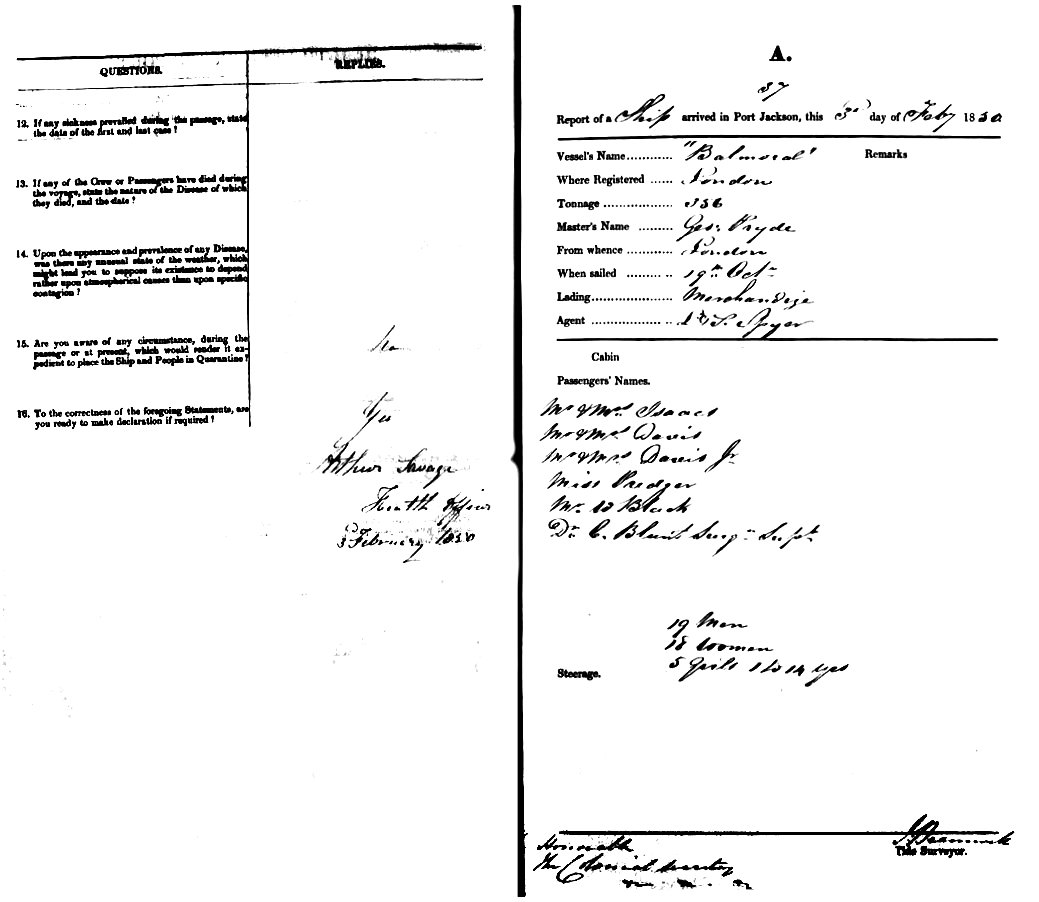 QUESTIONS. REPLIES.
12. If any sickness prevailed during the passage, state
the date of the first and last case?
13. If any of the Crew or Passengers have died during
the voyage, state the nature of the Disease of which
they died, and the date?
14. Upon the appearance and prevalence of any Disease,
was there any unusual state of the weather, which
might lead you to suppose its existence to depend
rather upon atmospherical causes than upon specific
contagion?
15. Are you aware of any circumstance, during the
passage or at present, which would render it ex-
pedient to place the Ship and People in Quarantine?
No
16. To the correctness of the foregoing Statements, are
you ready to make declaration if required?
Yes
Arthur Savage
Health Officer
3 February 1850
A.
37
Report of a Ship arrived in Port Jackson, this 3d day of Feby 1850
Vessel's Name "Balmoral" Remarks
Where Registered London
Tonnage 336
Master's Name Geo: Pryde
From whence London
When sailed 19th Oct
Lading Merchandize
Agent S. Spyer
Cabin
Passengers' Names.
Mr & Mrs Isaacs
Mr & Mrs Davis
Mr & Mrs Davis Jr
Miss Predger
Mr Black
Dr C. Blunt Surgn Supt
19 Men
18 Women
Steerage. 5 Girls 1 to 14 yrs
This Surveyor.
Honorable
The Colonial Secretary